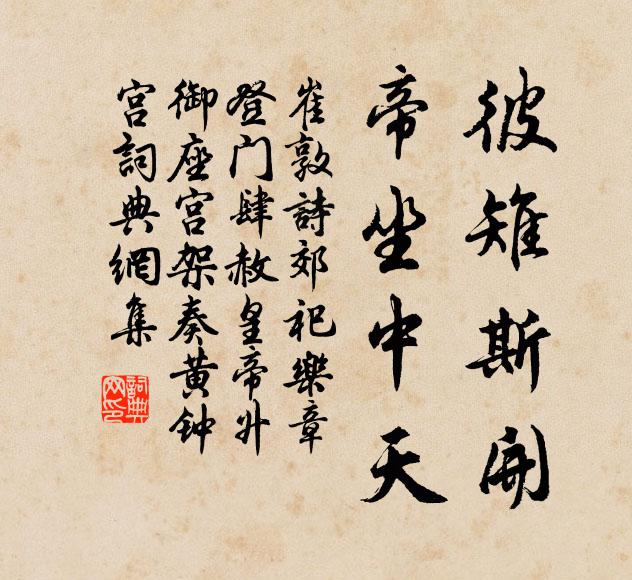 彼雉斯開
帝坐中天
崔敦詩郊祀樂章
登门肆赦皇帝升
御座宫架奏黄钟
宫詞典網集
詞典网印